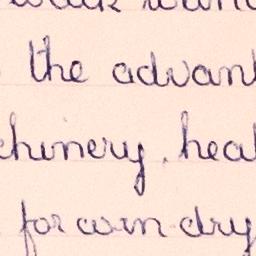 the advant
chinery, heat
for corn dry